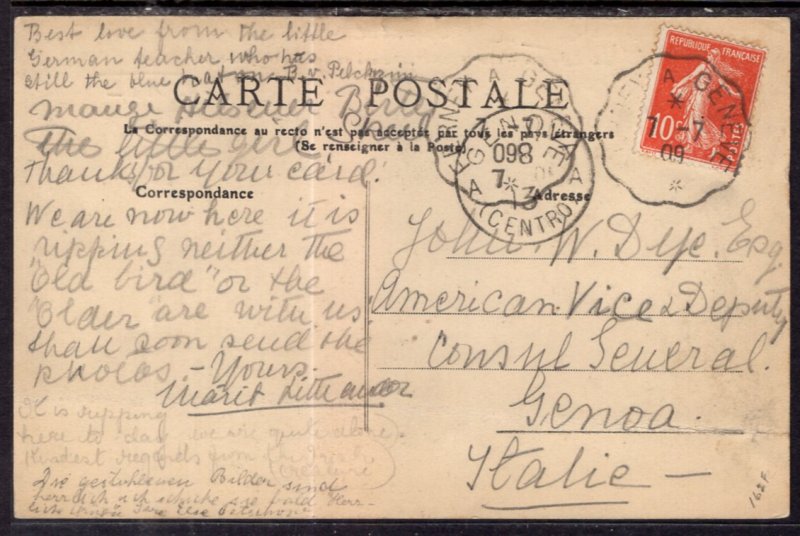 Best love from the little
German teacher who has
still the blue
CARTE POSTALE
La Correspondance au recto n'est pas acceptée par tous les pays étrangers
(Se renseigner à la Poste)
The little girl
Thanks for your card!
Correspondance
We are now here it is
ripping neither the
"Old bird" or the
"Older" are with us.
Shall soon send the
photos. - Yours.
Marit
It is ripping
here to day we are quite alone
Kindest regards from
creature
Die gestohlenen Bilder sind
herrlich ich schicke sie bald Herz-
Adresse
John W. Dye. Esq.
American Vice & Deputy
Consul General
Genoa.
Italie
REPUBLIQUE FRANÇAISE
10c
A GENEVE
7-7
09
GENOVA
(CENTRO)
162F